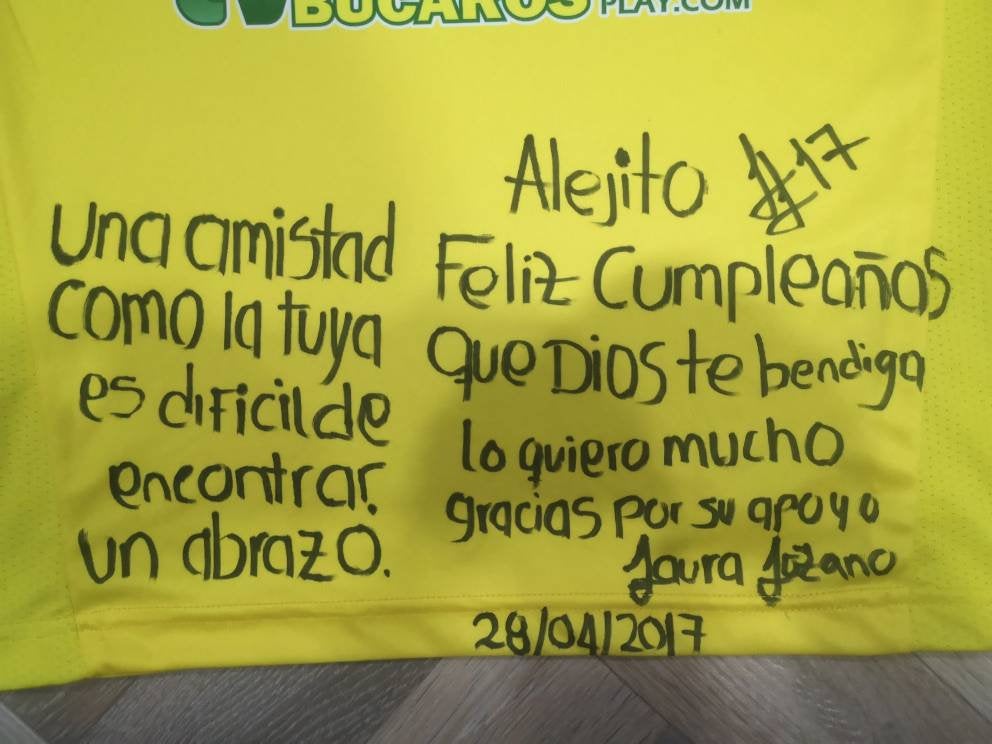 BUCAROS PLAY.COM
Alejito #17
Feliz Cumpleaños
que Dios te bendiga
lo quiero mucho
gracias por su apoyo
Laura Lozano
28/04/2017
Una amistad
como la tuya
es dificil de
encontrar.
un abrazo.